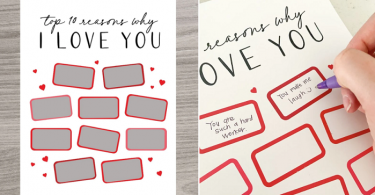 top 10 reasons why
I LOVE YOU
reasons why
OVE YOU
You make me
laugh :)
You are
such a hard
worker.